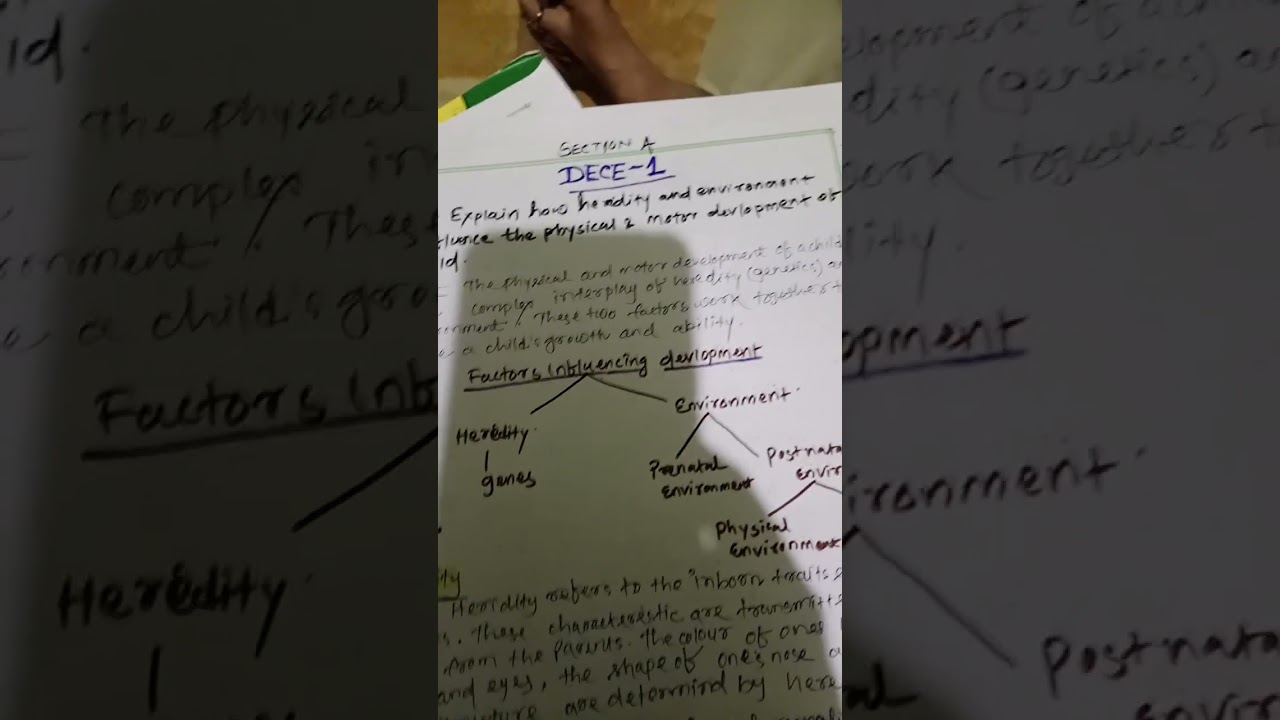 SECTION A
DECE-1
Explain how heredity and environment
fluence the physical & motor devlopment of
ld.
The physical and motor development of a child
complex interplay of heredity (genetics) a
ronment. These two factors work together t
a child's growth and ability.
Factors Influencing devlopment
Heredity
genes
Environment
Prenatal
Environment
Postnata
Envir
Physical
Environment
ty
Heridity refers to the inborn traits
s. These characterestic are transmitte
from the Parents. The colour of ones
and eyes, the shape of one's nose a
are determind by here